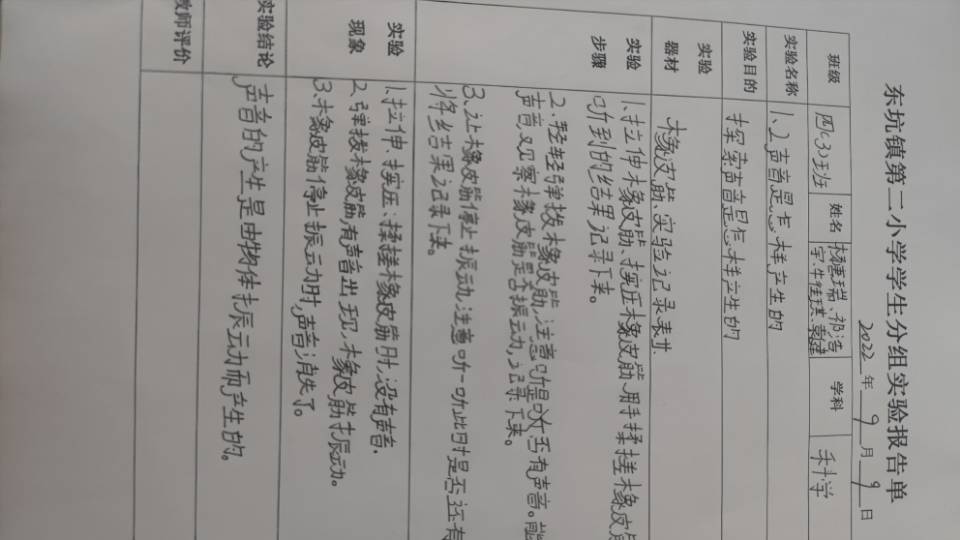 东坑镇第二小学学生分组实验报告单
2022年9月9日
班级 四(3)班 姓名 学科 科学
实验名称 1、2声音是怎样产生的
实验目的 探索声音是怎样产生的
实验器材 橡皮筋、实验记录表
实验步骤
1、拉伸橡皮筋、按压橡皮筋、用手揉搓橡皮
听到的结果记录下来。
2、轻轻弹拨橡皮筋,注意听是否有声音。能
声音,观察橡皮筋是否振动,记录下来。
3、让橡皮筋停止振动,注意听一听此时是否还有
将结果记录下来。
实验现象
1、拉伸、按压、揉搓橡皮筋时,没有声音.
2、弹拨橡皮筋有声音出现,橡皮筋振动。
3、橡皮筋停止振动时,声音消失了。
实验结论 声音的产生是由物体振动而产生的。
教师评价